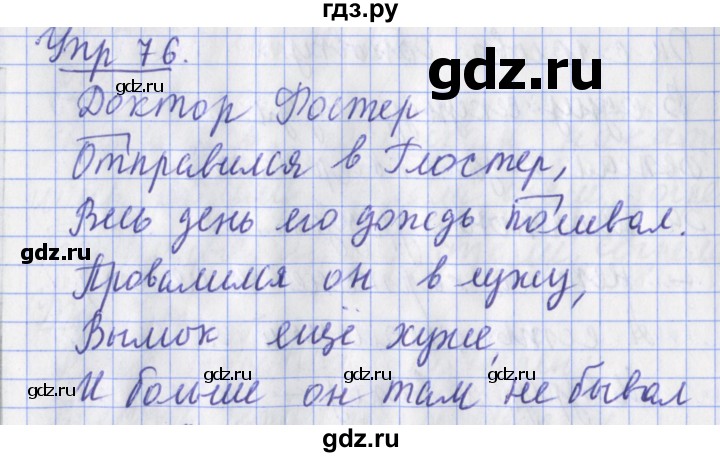 гдз.ру
Упр 76.
gdz.ru
gdz.ru
Доктор Фостер
gdz.ru
Отправился в Глостер,
Весь день его дождь поливал.
gdz.ru
gdz.ru
Провалился он в лужу,
Вымок ещё хуже,
gdz.ru gdz.ru gdz.ru gdz.ru
И больше он там не бывал
gdz.ru